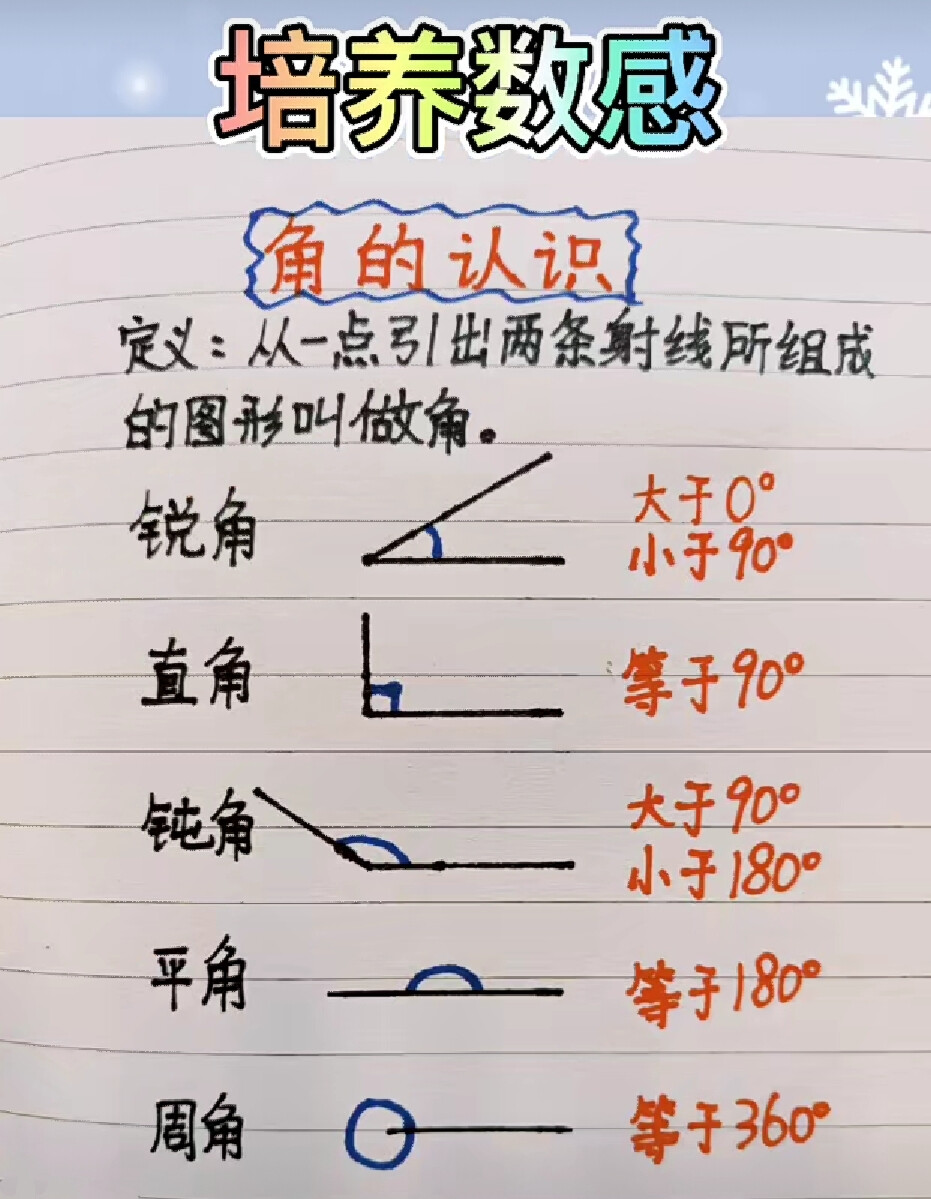 培养数感
角的认识
定义：从一点引出两条射线所组成
的图形叫做角。
锐角
大于0°
小于90°
直角
等于90°
钝角
大于90°
小于180°
平角
等于180°
周角
等于360°